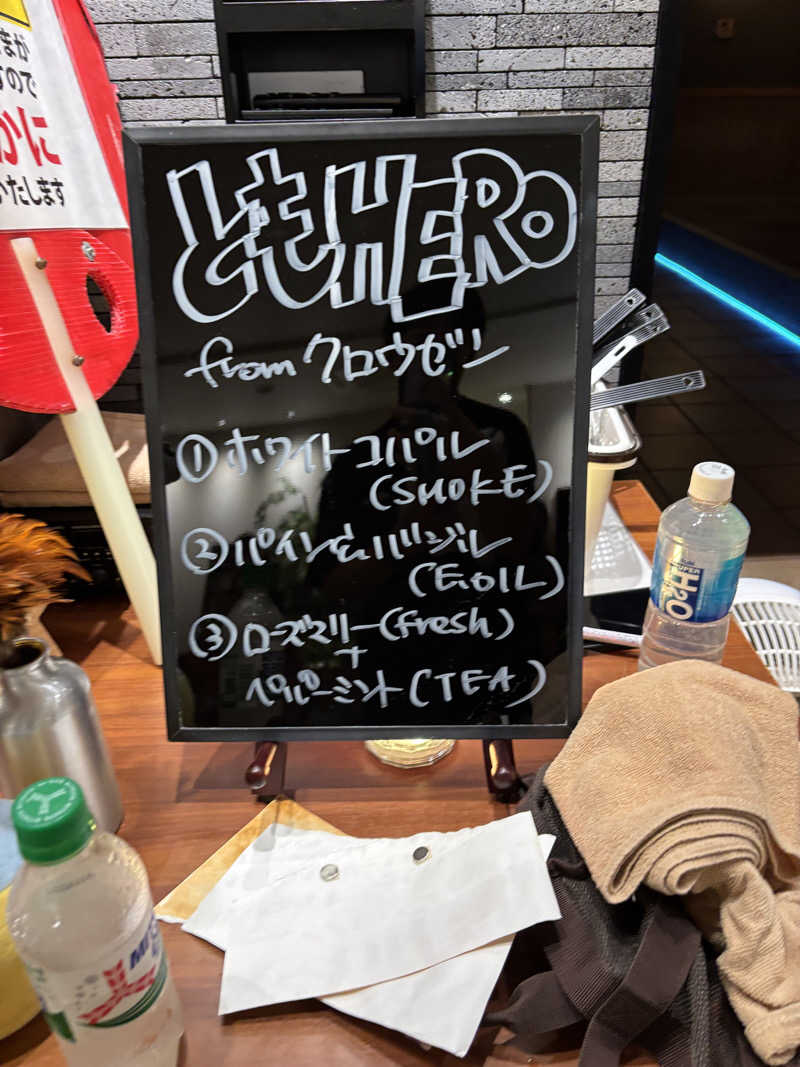 まが
すので
かに
いたします
ともHERO
from クロウゼン
①ホワイトコパル
(SMOKE)
②パイン&バジル
(E.OIL)
③ローズマリー(fresh)
+
ペパーミント(TEA)
SUPER
H2O